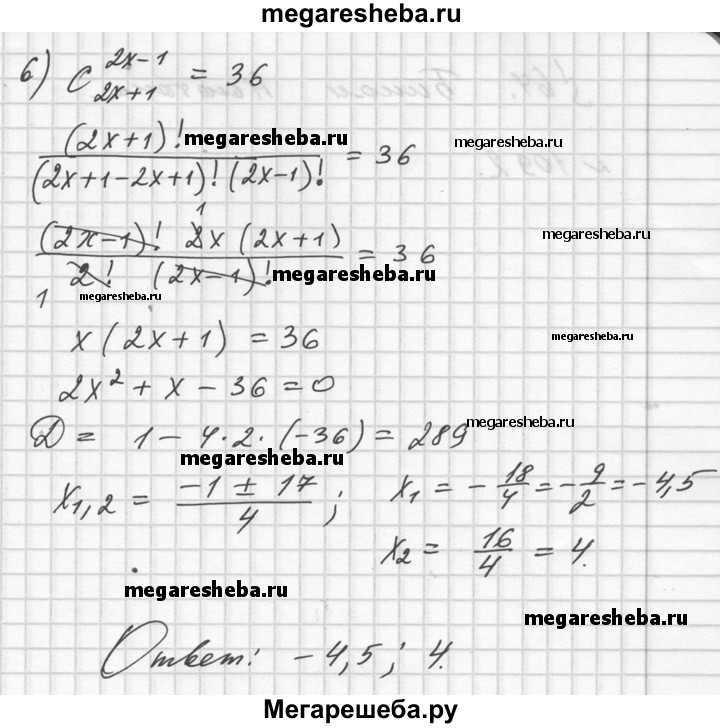 megaresheba.ru
6) C_{2x+1}^{2x-1} = 36
(2x+1)! / (2x+1-2x+1)! (2x-1)! = 36
megaresheba.ru
megaresheba.ru
1
(2x-1)! 2x (2x+1) / 2! (2x-1)! = 36
megaresheba.ru
1
megaresheba.ru
megaresheba.ru
x (2x+1) = 36
megaresheba.ru
2x² + x - 36 = 0
D = 1 - 4·2·(-36) = 289
megaresheba.ru
megaresheba.ru
x_{1,2} = (-1 ± 17) / 4 ; x₁ = -18/4 = -9/2 = -4,5
x₂ = 16/4 = 4.
megaresheba.ru
megaresheba.ru
Ответ: -4,5; 4.
Мегарешеба.ру